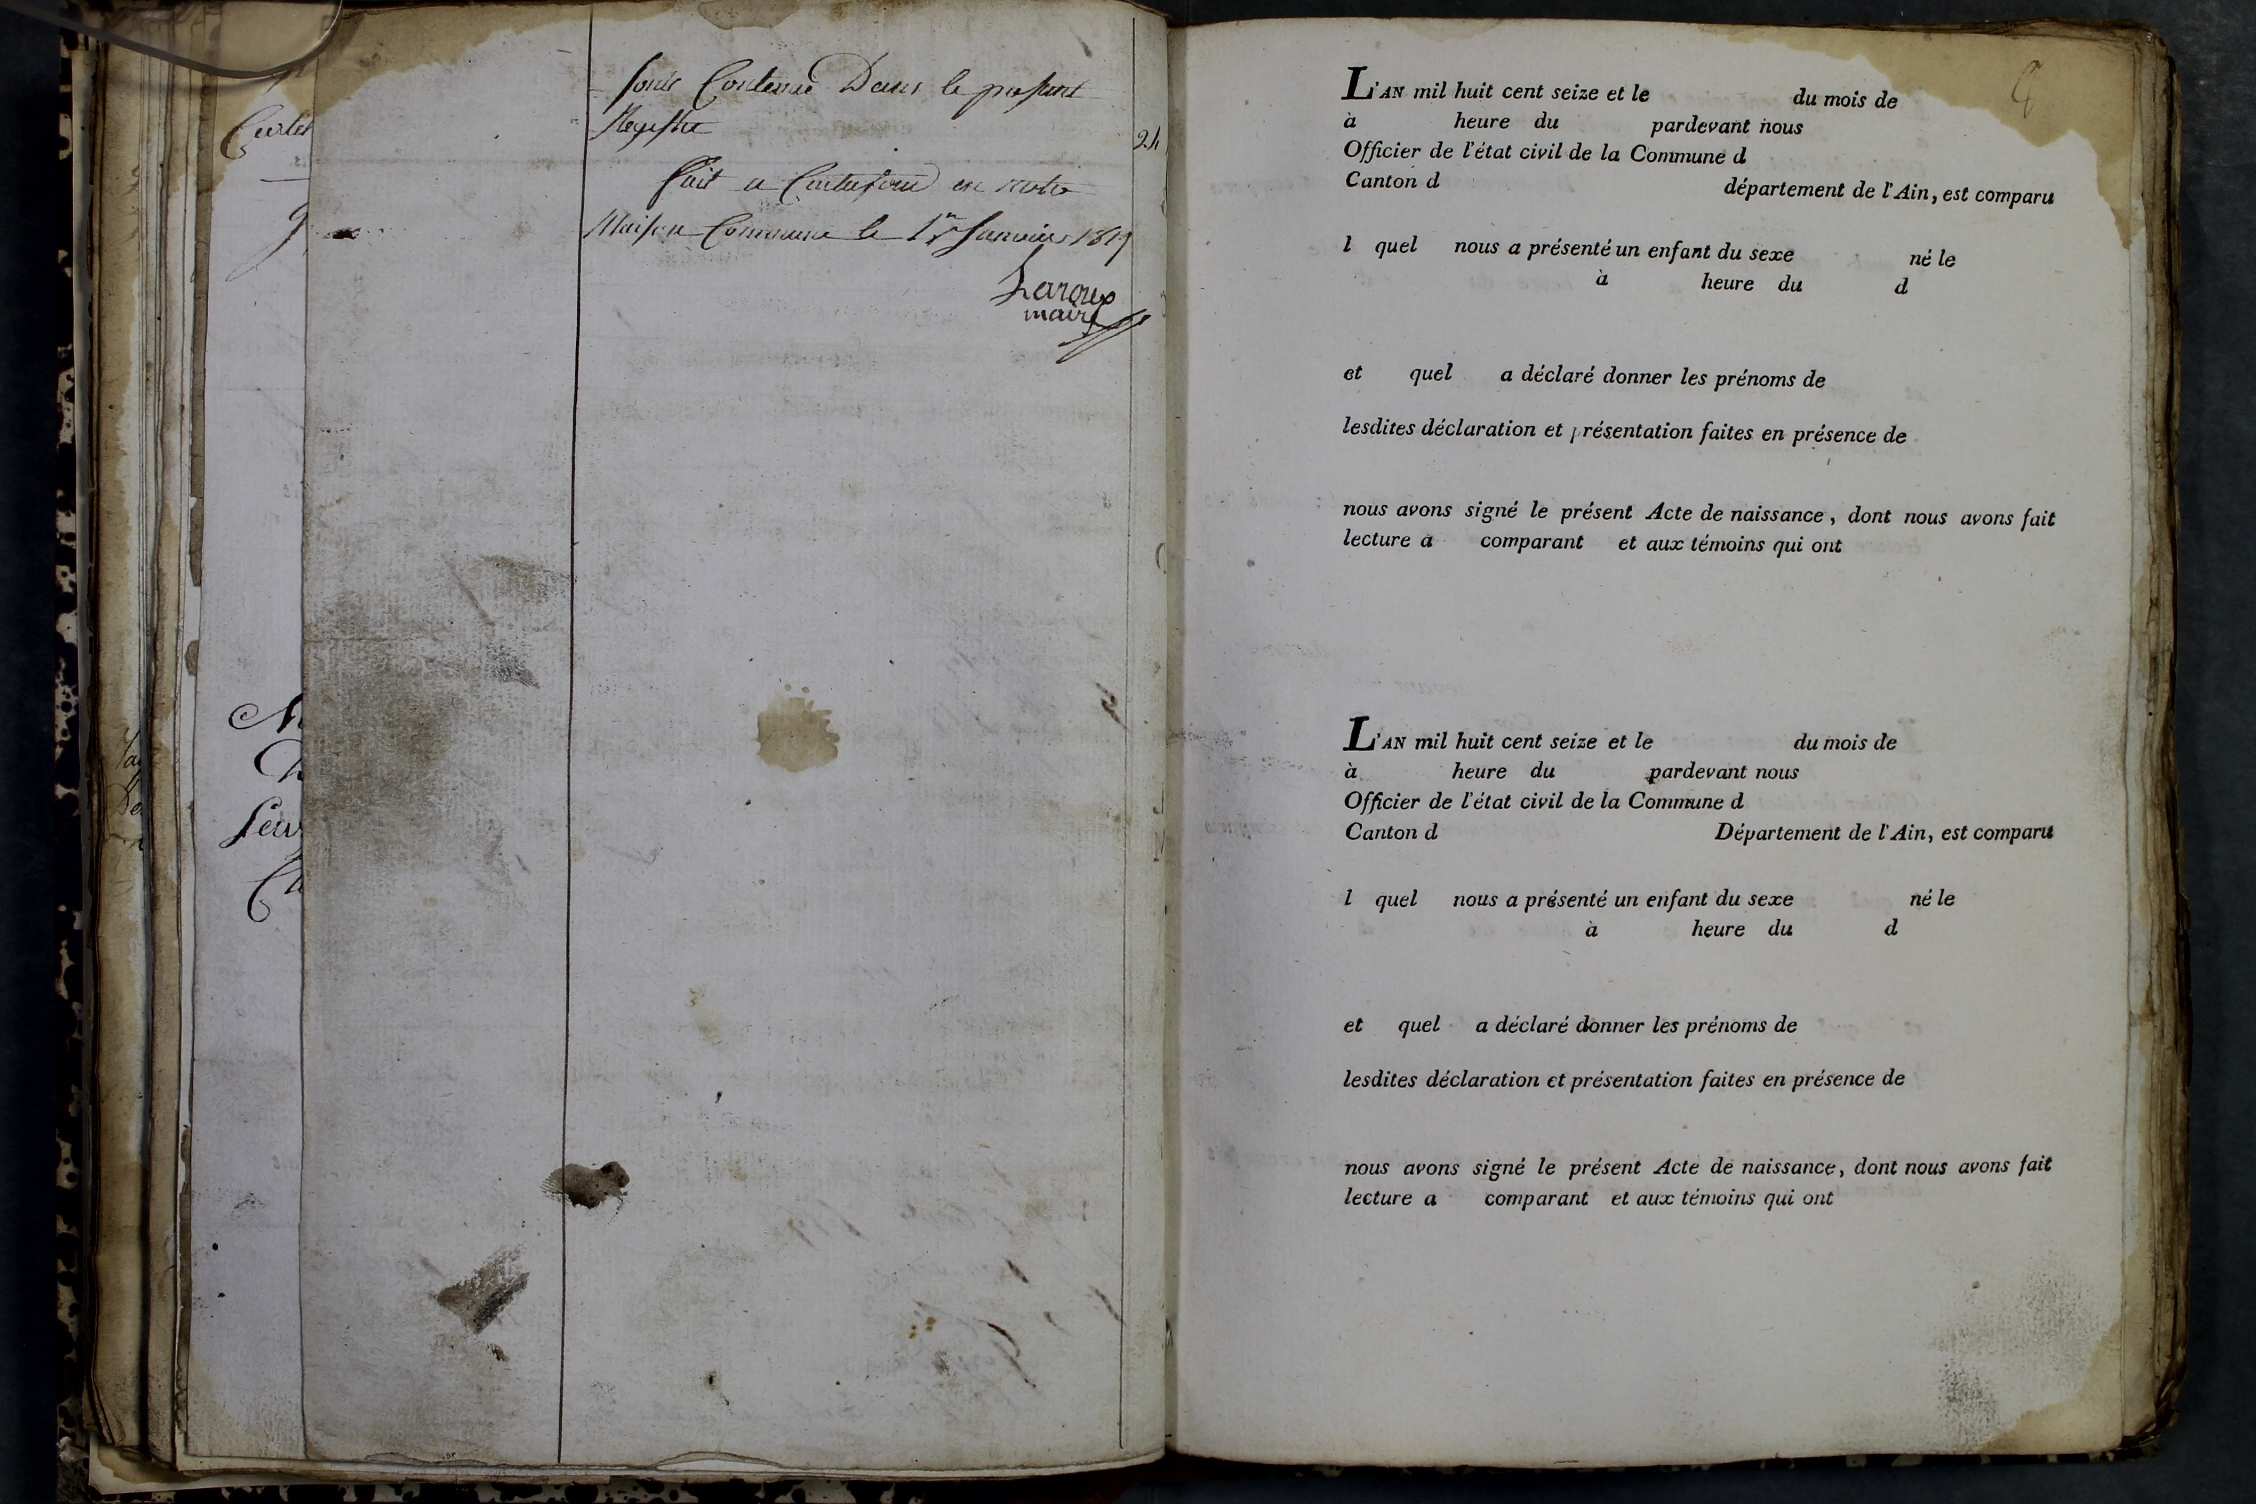 Curtet
9
sont Contenu Dans le present
Registre
24
fait a Curtafond en notre
Maison Commune le 1er Janvier 1817
Laroux
maire
L'AN mil huit cent seize et le du mois de
à heure du pardevant nous
Officier de l'état civil de la Commune d
Canton d département de l'Ain, est comparu
l quel nous a présenté un enfant du sexe né le
à heure du d
et quel a déclaré donner les prénoms de
lesdites déclaration et présentation faites en présence de
nous avons signé le présent Acte de naissance, dont nous avons fait
lecture a comparant et aux témoins qui ont
L'AN mil huit cent seize et le du mois de
à heure du pardevant nous
Officier de l'état civil de la Commune d
Canton d Département de l'Ain, est comparu
l quel nous a présenté un enfant du sexe né le
à heure du d
et quel a déclaré donner les prénoms de
lesdites déclaration et présentation faites en présence de
nous avons signé le présent Acte de naissance, dont nous avons fait
lecture a comparant et aux témoins qui ont